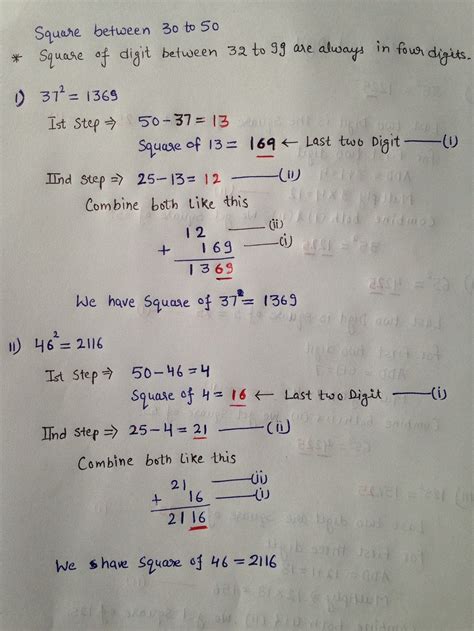 Square between 30 to 50
* Square of digit between 32 to 99 are always in four digits.
i) 37² = 1369
Ist Step ⇒ 50-37 = 13
Square of 13 = 169 ← Last two Digit —(i)
IInd Step ⇒ 25-13 = 12 —(ii)
Combine both like this
12 —(ii)
+ 169 —(i)
1369
We have Square of 37² = 1369
ii) 46² = 2116
Ist Step ⇒ 50-46 = 4
Square of 4 = 16 ← Last two Digit —(i)
IInd Step ⇒ 25-4 = 21 —(ii)
Combine both like this
21 —(ii)
+ 16 —(i)
2116
We have Square of 46 = 2116